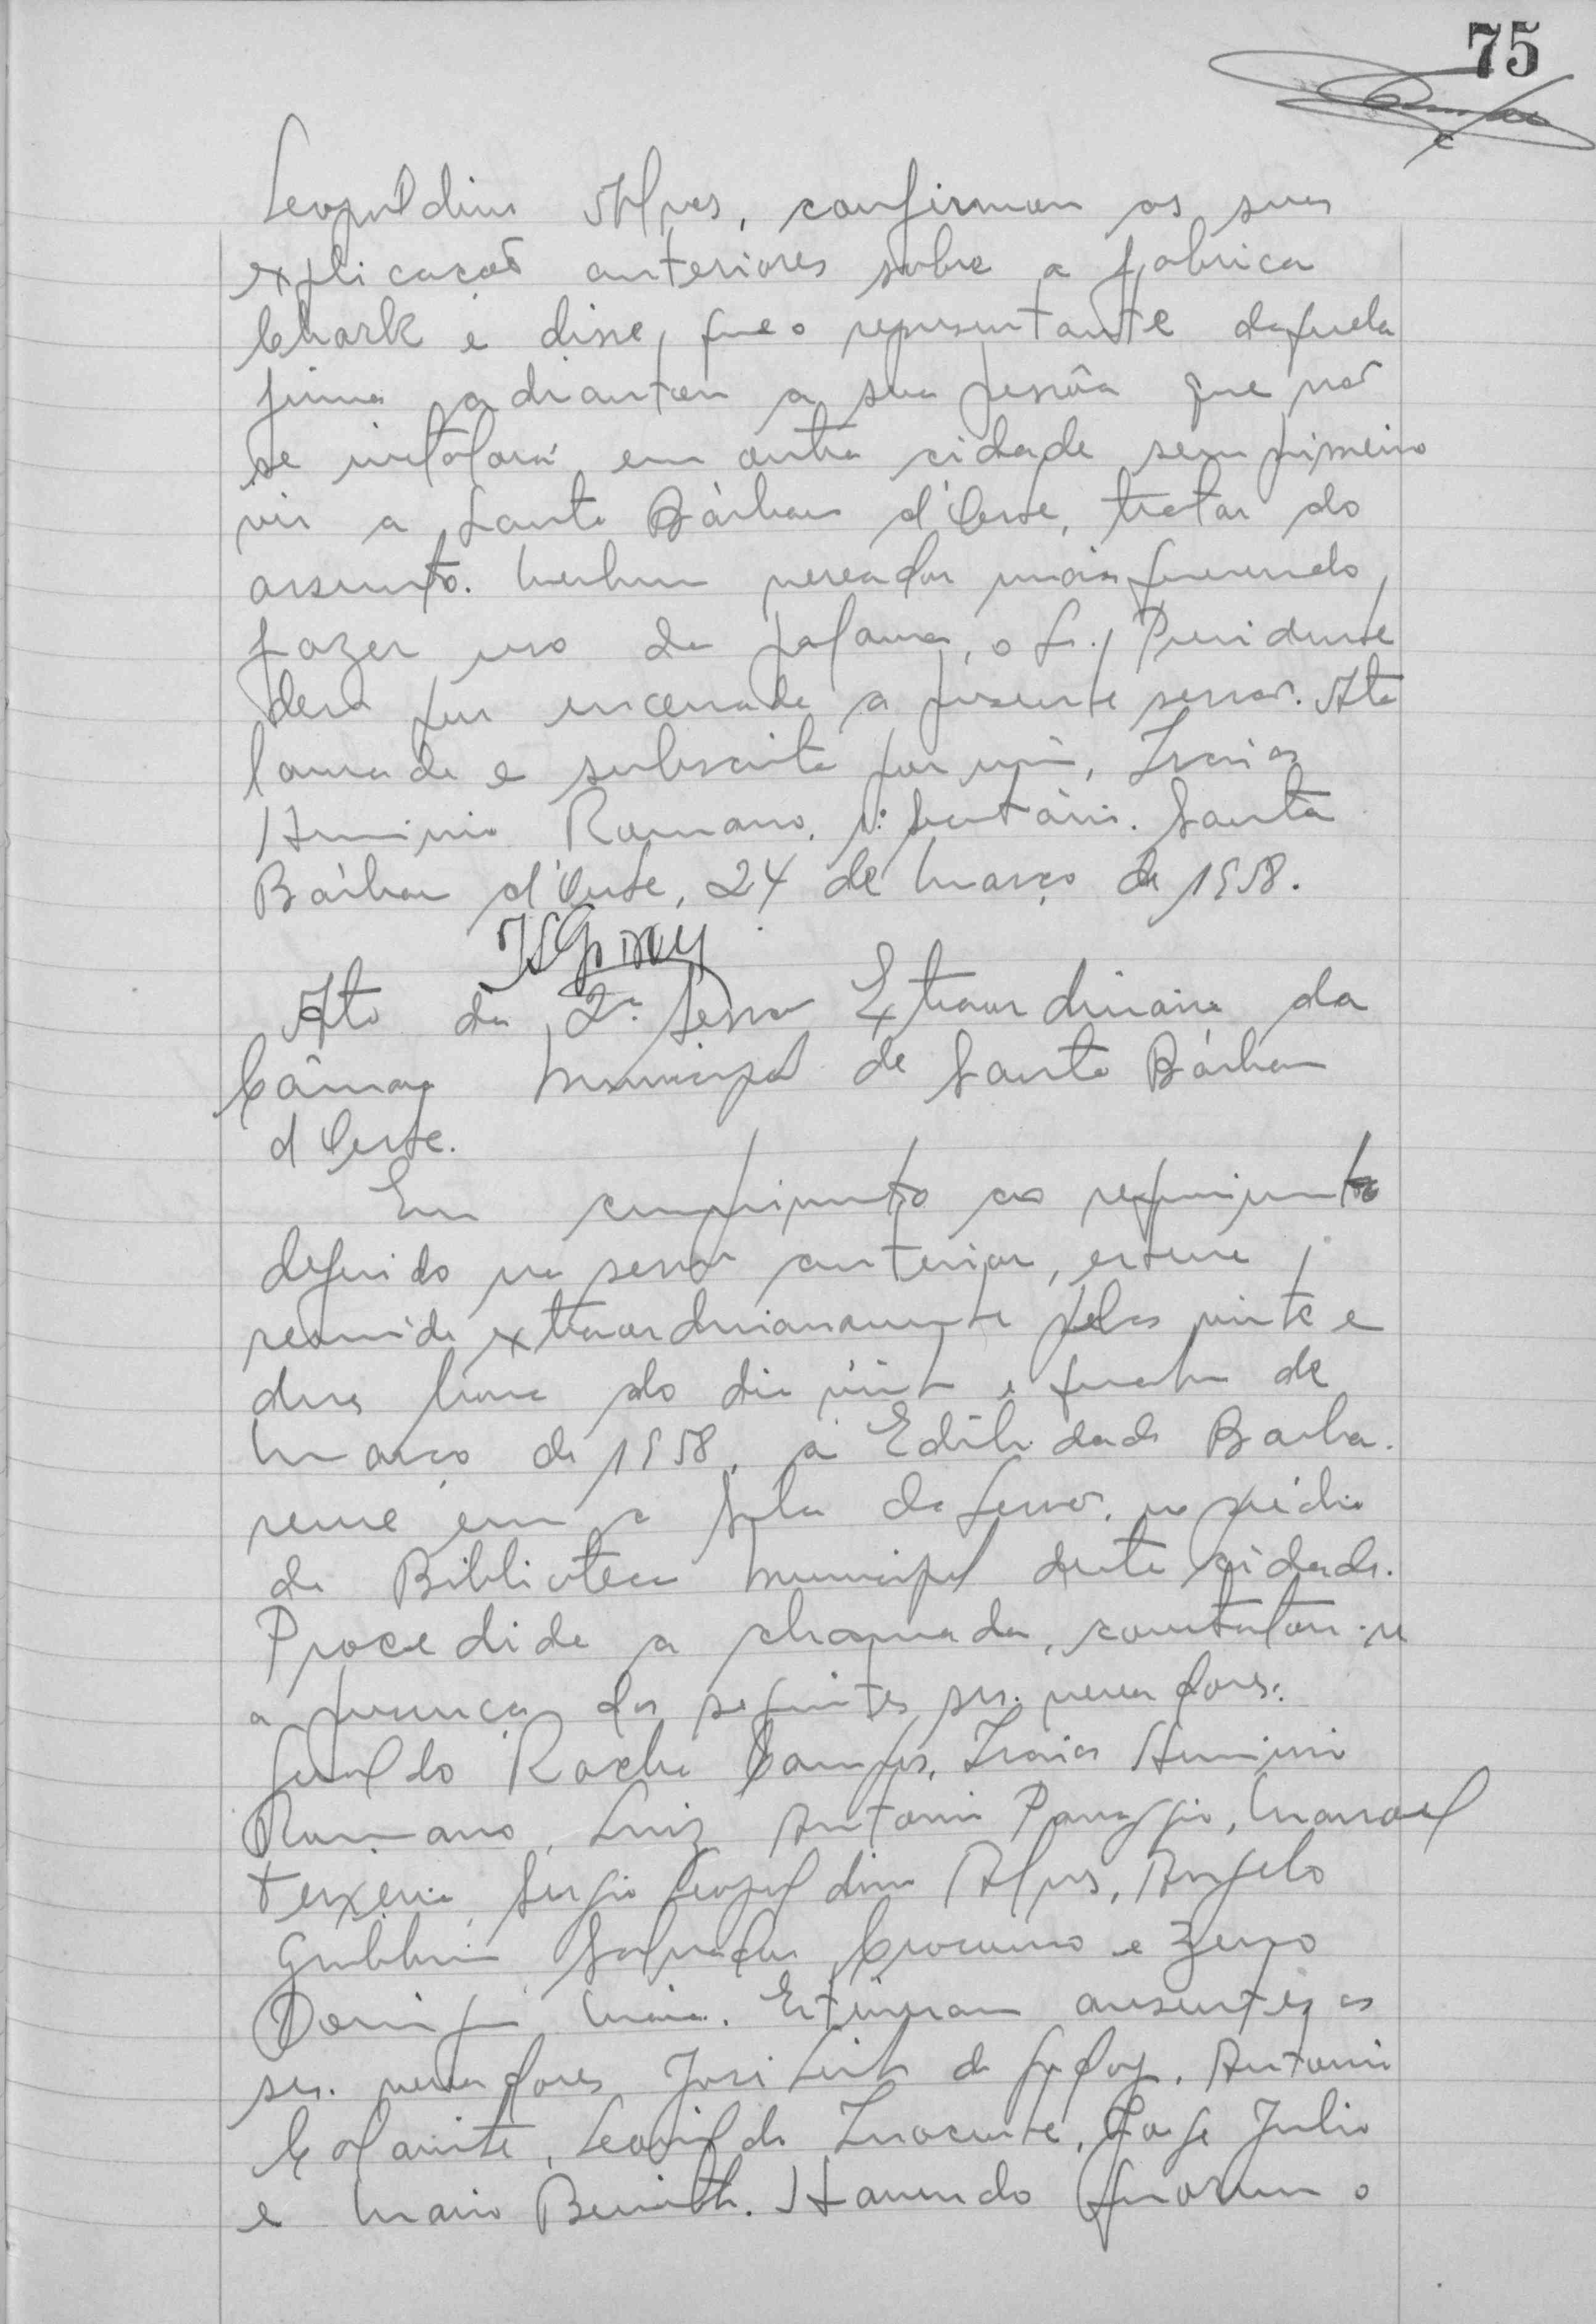 75
Leopoldino Alves, confirmou as suas
explicações anteriores sobre a fabrica
Chark e disse, que o representante daquela
firma adiantou a sua pessôa que não
se instalará em outra cidade sem primeiro
vir a Santa Bárbara d'Oeste, tratar do
assunto. Nenhum vereador mais querendo
fazer uso da palavra, o Sr. Presidente
deu por encerrada a presente sessão. Ata
lavrada e subscrita por mim, Isaias
Herminio Romano, 1º Secretário. Santa
Bárbara d'Oeste, 24 de Março de 1958.
Ata da 2ª Sessão Extraordinária da
Câmara Municipal de Santa Bárbara
d Oeste.
Em cumprimento ao requerimento
deferido na sessão anterior, esteve
reunida extraordinariamente pelas vinte e
duas horas do dia vinte e quatro de
Março de 1958, a Edilidade Barba-
rense em a Sala da Sessão, no prédio
da Biblioteca Municipal desta cidade.
Procedida a chamada, constatou-se
a presença dos seguintes srs. vereadores:
Geraldo Rocha Campos, Isaias Herminio
Romano, Luiz Antonio Panaggio, Manoel
Teixeira, Sergio Leopoldino Alves, Angelo
Giubbina, Salvador Crocomo e Zeno
Domingos Maia. Estiveram ausentes os
srs. vereadores José Leite de Godoy, Antonio
Colainte, Leonildo Inocente, Jorge Julio
e Mario Benith. Havendo quorum o